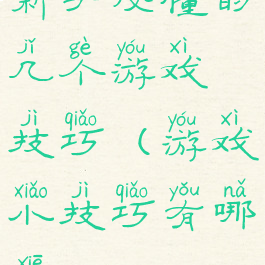 新 懂的
jǐ gè yóu xì
几个游戏
jì qiǎo yóu xì
技巧（游戏
xiǎo jì qiǎo yǒu nǎ
小技巧有哪
xiē